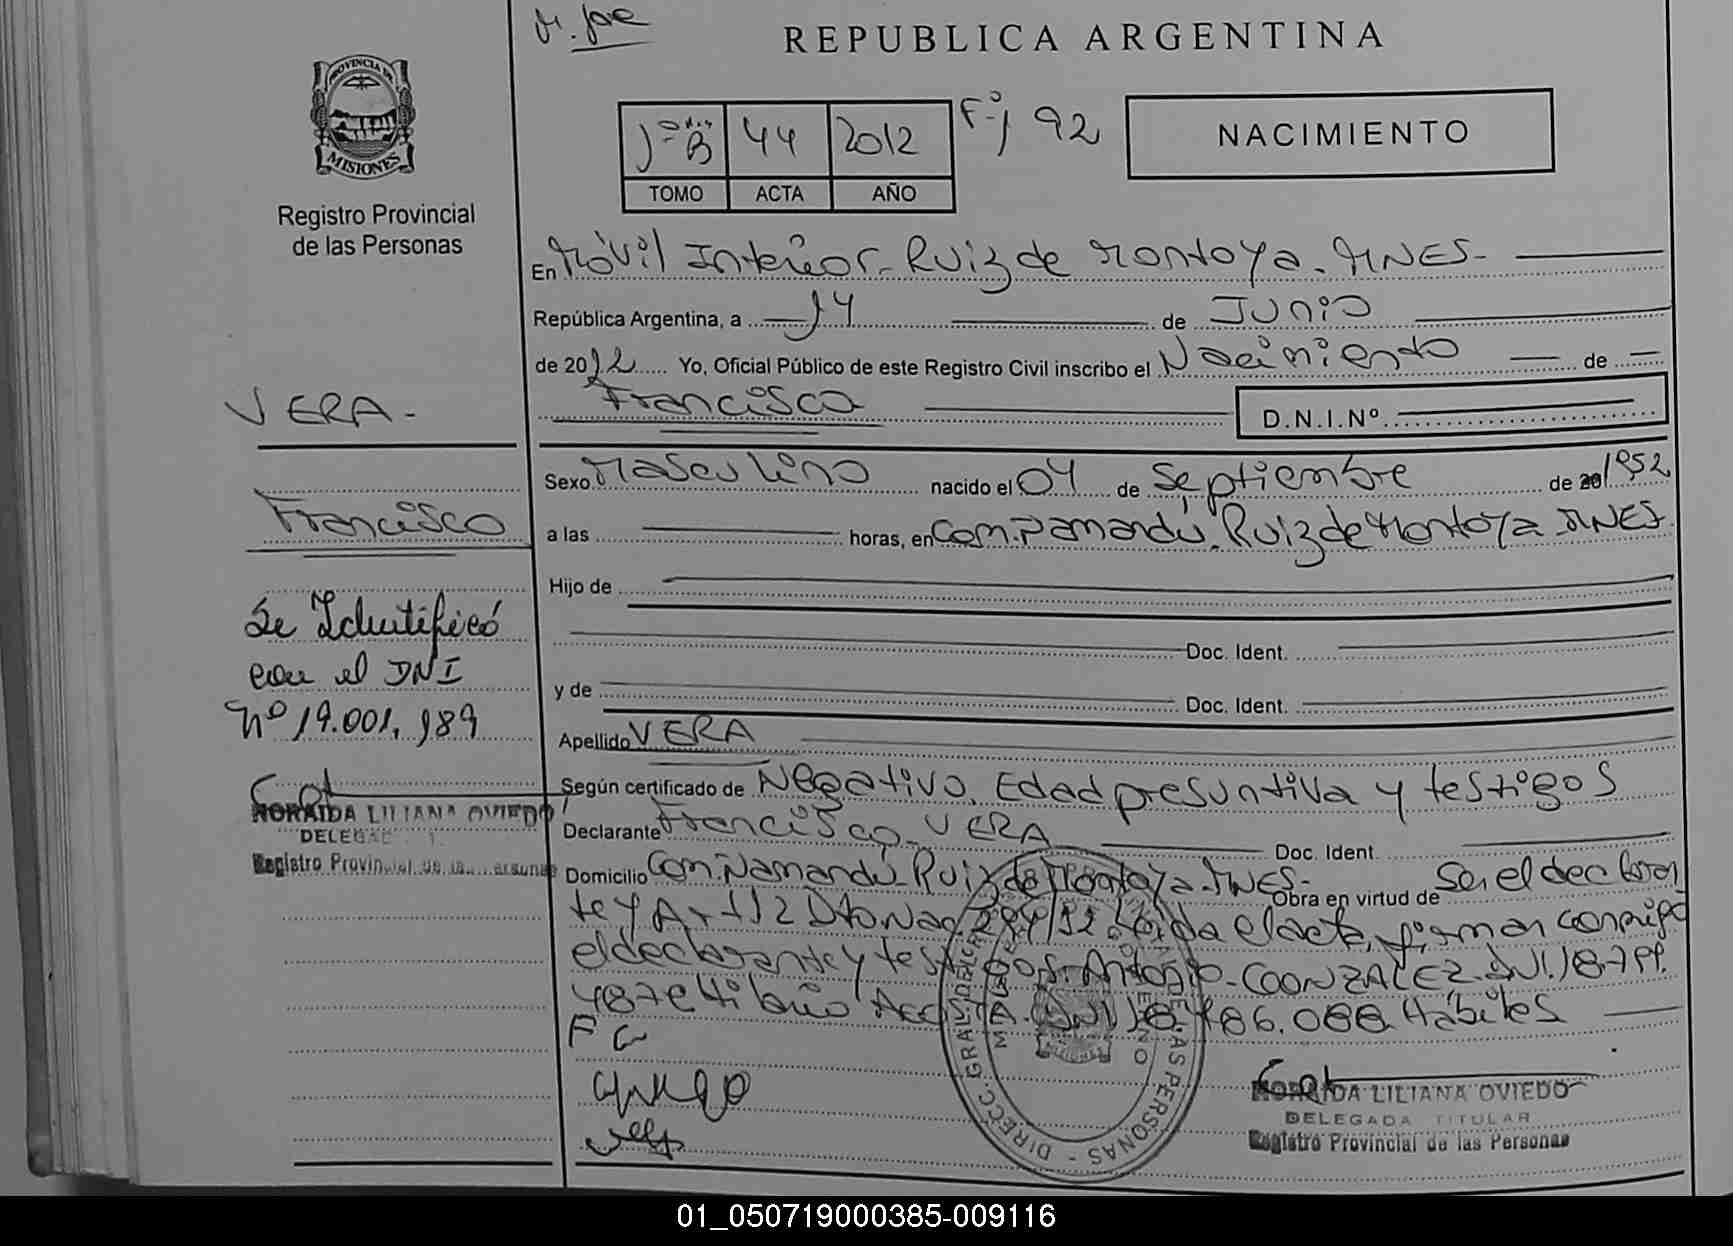 REPUBLICA ARGENTINA
PROVINCIA DE
MISIONES
Registro Provincial
de las Personas
44 2012 92
TOMO ACTA AÑO
NACIMIENTO
En Móvil Interior - Ruiz de Montoya. MNES-
República Argentina, a 14 de Junio
de 2012 Yo, Oficial Público de este Registro Civil inscribo el Nacimiento de
Francisco D.N.I.Nº
VERA-
Francisco
Se Identificó
con el DNI
Nº 19.001.989
NORAIDA LILIANA OVIEDO
Registro Provincial de las Personas
Sexo Masculino nacido el 04 de Septiembre de 20 1952
a las horas, en Com. Ñamandú. Ruiz de Montoya MNES.
Hijo de
Doc. Ident.
y de Doc. Ident.
Apellido VERA
Según certificado de Negativo. Edad presuntiva y testigos
Declarante Francisco VERA Doc. Ident.
Domicilio Com. Ñamandú - Ruiz de Montoya. MNES- Obra en virtud de Ser el declaran
te y Art 12 Dto Nac 294/12. Leída el acta, firman conmigo
el declarante y testigos: Antonio GONZALEZ. DNI.
486.088 Hábiles
F G
NORAIDA LILIANA OVIEDO
DELEGADA TITULAR
Registro Provincial de las Personas
01_050719000385-009116